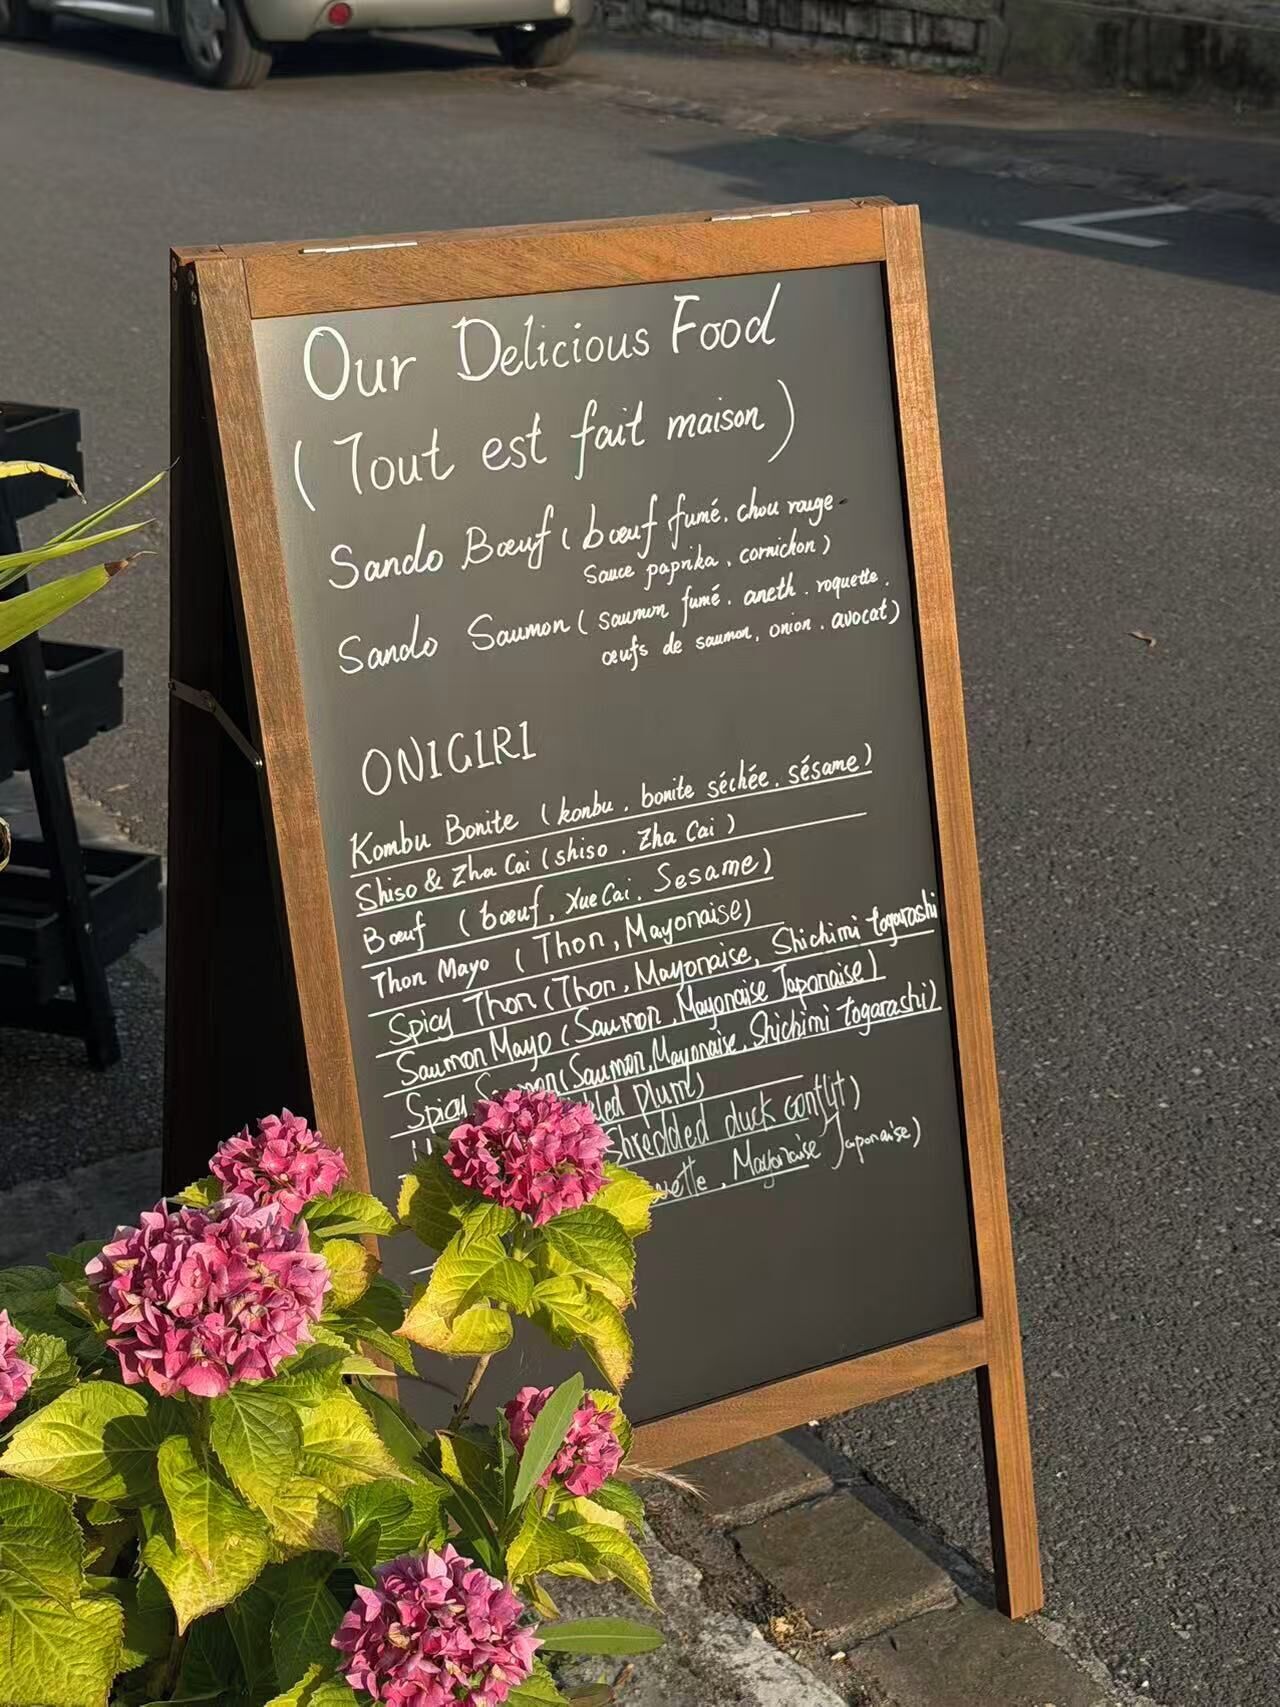 Our Delicious Food
(Tout est fait maison)
Sando Bœuf (bœuf fumé, chou rouge
Sauce paprika, cornichon)
Sando Saumon (saumon fumé, aneth, roquette,
œufs de saumon, onion, avocat)
ONIGIRI
Kombu Bonite (konbu, bonite séchée, sésame)
Shiso & Zha Cai (shiso, Zha Cai)
Bœuf (bœuf, Xue Cai, Sesame)
Thon Mayo (Thon, Mayonaise)
Spicy Thon (Thon, Mayonaise, Shichimi togarashi
Saumon Mayo (Saumon, Mayonaise Japonaise)
Spicy (Saumon, Mayonaise, Shichimi togarashi)
Plum)
Shredded duck confit)
Mayonaise Japonaise)